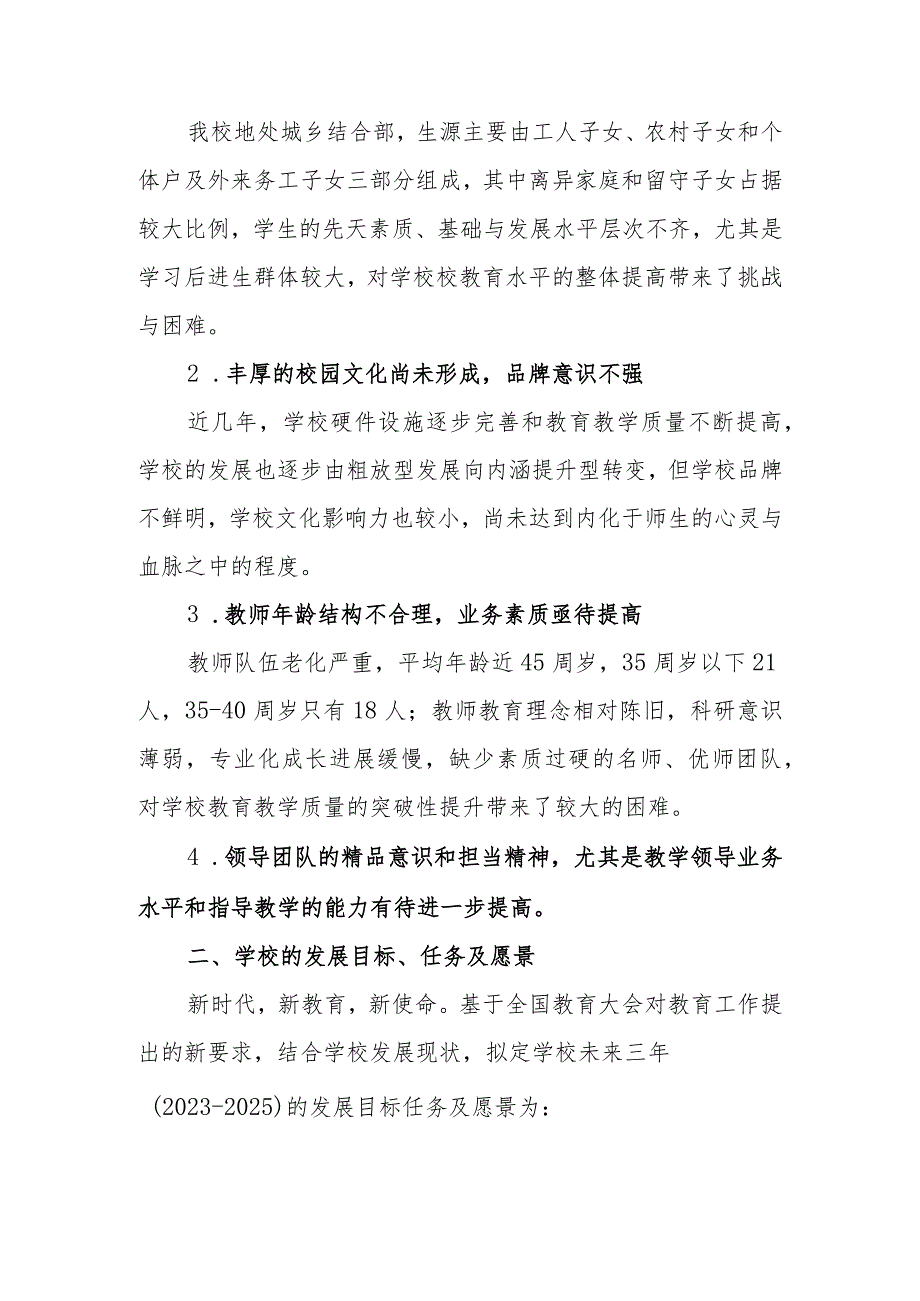 我校地处城乡结合部，生源主要由工人子女、农村子女和个
体户及外来务工子女三部分组成，其中离异家庭和留守子女占据
较大比例，学生的先天素质、基础与发展水平层次不齐，尤其是
学习后进生群体较大，对学校校教育水平的整体提高带来了挑战
与困难。
2 .丰厚的校园文化尚未形成，品牌意识不强
近几年，学校硬件设施逐步完善和教育教学质量不断提高，
学校的发展也逐步由粗放型发展向内涵提升型转变，但学校品牌
不鲜明，学校文化影响力也较小，尚未达到内化于师生的心灵与
血脉之中的程度。
3 .教师年龄结构不合理，业务素质亟待提高
教师队伍老化严重，平均年龄近 45 周岁，35 周岁以下 21
人，35-40 周岁只有 18 人；教师教育理念相对陈旧，科研意识
薄弱，专业化成长进展缓慢，缺少素质过硬的名师、优师团队，
对学校教育教学质量的突破性提升带来了较大的困难。
4 .领导团队的精品意识和担当精神，尤其是教学领导业务
水平和指导教学的能力有待进一步提高。
二、学校的发展目标、任务及愿景
新时代，新教育，新使命。基于全国教育大会对教育工作提
出的新要求，结合学校发展现状，拟定学校未来三年
(2023-2025)的发展目标任务及愿景为：